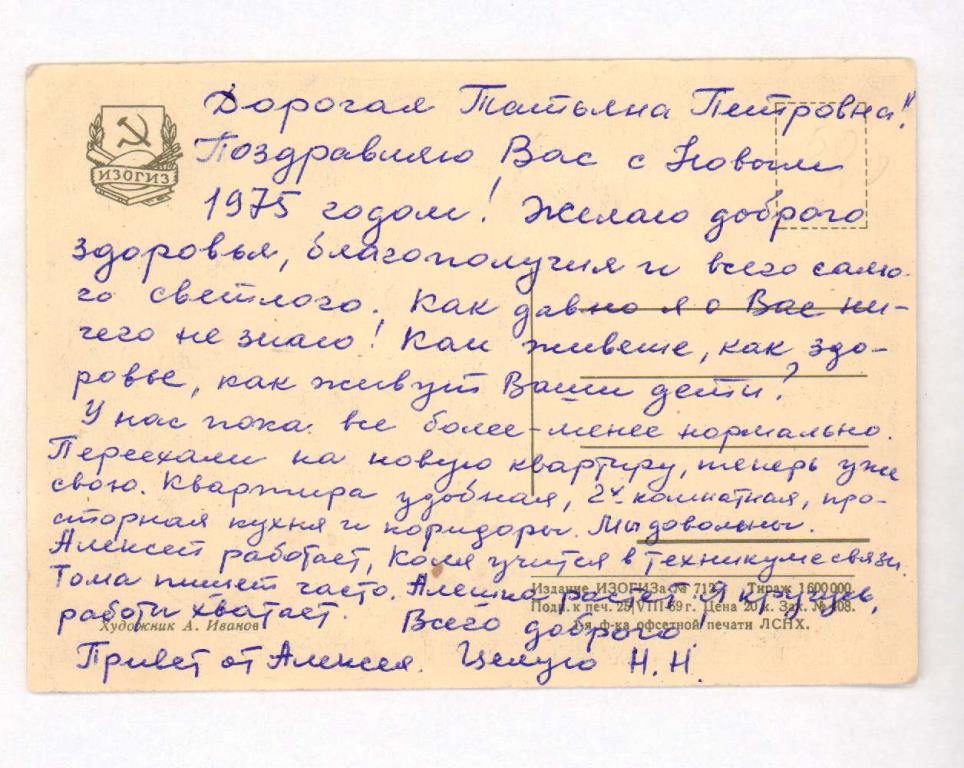 Дорогая Татьяна Петровна!
Поздравляю Вас с Новым
1975 годом! Желаю доброго
здоровья, благополучия и всего само-
го светлого. Как давно я о Вас ни-
чего не знаю! Как живете, как здо-
ровье, как живут Ваши дети?
У нас пока все более-менее нормально.
Переехали на новую квартиру, теперь уже
свою. Квартира удобная, 2х комнатная, про-
сторная кухня и коридоры. Мы довольны.
Алексей работает, Коля учится в техникуме связи.
Тома пишет часто. Алешка растет. Я кружусь,
работы хватает. Всего доброго!
Привет от Алексея. Целую Н.Н.
ИЗОГИЗ
Издание ИЗОГИЗа № 712 Тираж 1600000
Подп. к печ. 25/VIII-59 г. Цена 20 к. Зак. №
1-я ф-ка офсетной печати ЛСНХ.
Художник А. Иванов